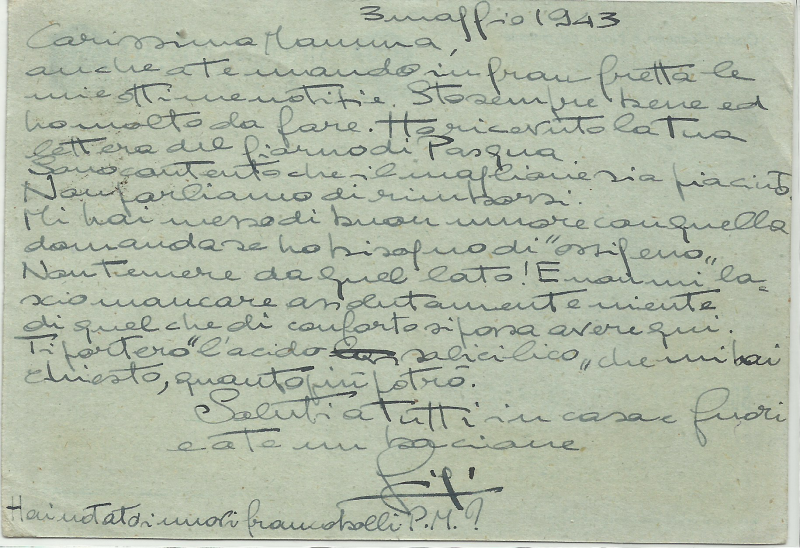 3 maggio 1943
Carissima Mamma,
anche a te mando in gran fretta le
mie ottime notizie. Sto sempre bene ed
ho molto da fare. Ho ricevuto la tua
lettera del giorno di Pasqua.
Sono contento che il maglione sia piaciuto.
Non parliamo di rimborsi.
Mi hai messo di buon umore con quella
domanda se ho bisogno di "ossigeno„
Non temere da quel lato! E non mi la=
scio mancare assolutamente niente
di quel che di conforto si possa avere qui.
Ti porterò "l'acido salicilico„ che mi hai
chiesto, quanto più potrò.
Saluti a tutti in casa e fuori
e a te un bacione
Gigi
Hai notato i nuovi francobolli P.M.?